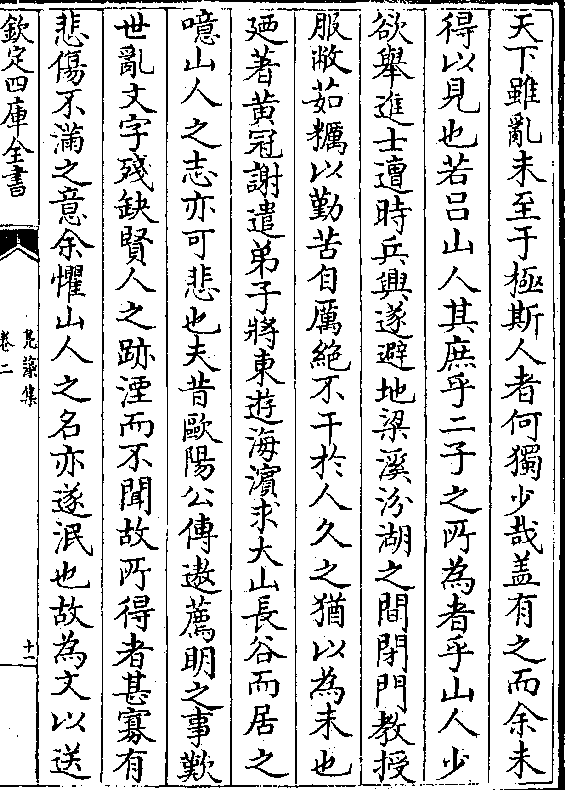 天下雖亂未至于極斯人者何獨少哉盖有之而余未
得以見也若吕山人其庶乎二子之所為者乎山人少
欲舉進士遭時兵興遂避地梁溪汾湖之間閉門教授
服敝茹糲以勤苦自厲絶不干於人久之猶以為未也
廼著黄冠謝遣弟子將東遊海濵求大山長谷而居之
噫山人之志亦可悲也夫昔歐陽公傳遨薦明之事歎
世亂文字殘缺賢人之跡湮而不聞故所得者甚寡有
悲傷不滿之意余懼山人之名亦遂泯也故為文以送
欽定四庫全書
鳬藻集
卷二
十二